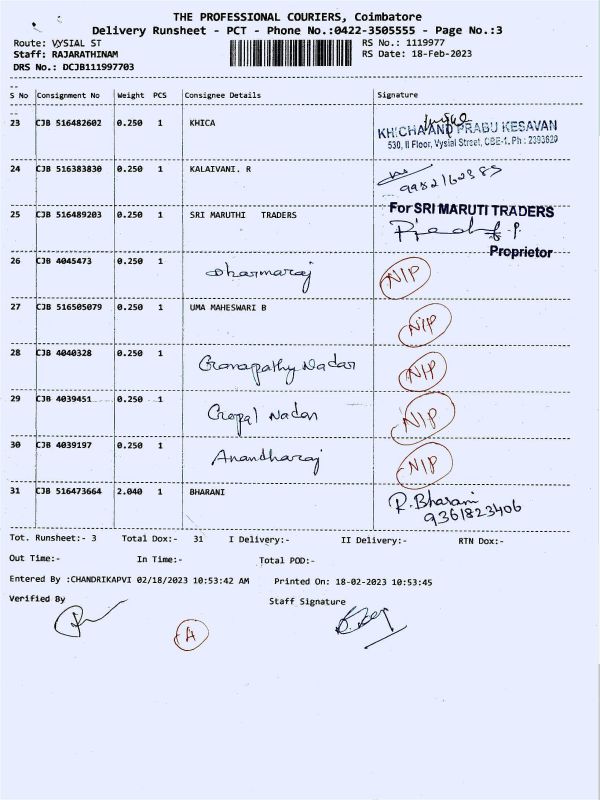 THE PROFESSIONAL COURIERS, Coimbatore
Delivery Runsheet - PCT - Phone No.:0422-3505555 - Page No.:3
Route: VYSIAL ST RS No.: 1119977
Staff: RAJARATHINAM RS Date: 18-Feb-2023
DRS No.: DCJB111997703
S No Consignment No Weight PCS Consignee Details Signature
23 CJB 516482602 0.250 1 KHICA
KHICHA AND PRABU KESAVAN
530, II Floor, Vysial Street, CBE-1. Ph : 2393829
24 CJB 516383830 0.250 1 KALAIVANI. R
9952160385
25 CJB 516489203 0.250 1 SRI MARUTHI TRADERS For SRI MARUTI TRADERS
Proprietor
26 CJB 4045473 0.250 1 Dharmaraj N/P
27 CJB 516505079 0.250 1 UMA MAHESWARI B N/P
28 CJB 4040328 0.250 1 Ganapathy Nadar N/P
29 CJB 4039451 0.250 1 Gopal Nadar N/P
30 CJB 4039197 0.250 1 Anandharaj N/P
31 CJB 516473664 2.040 1 BHARANI R. Bharani
9361823406
Tot. Runsheet:- 3 Total Dox:- 31 I Delivery:- II Delivery:- RTN Dox:-
Out Time:- In Time:- Total POD:-
Entered By :CHANDRIKAPVI 02/18/2023 10:53:42 AM Printed On: 18-02-2023 10:53:45
Verified By Staff Signature
A